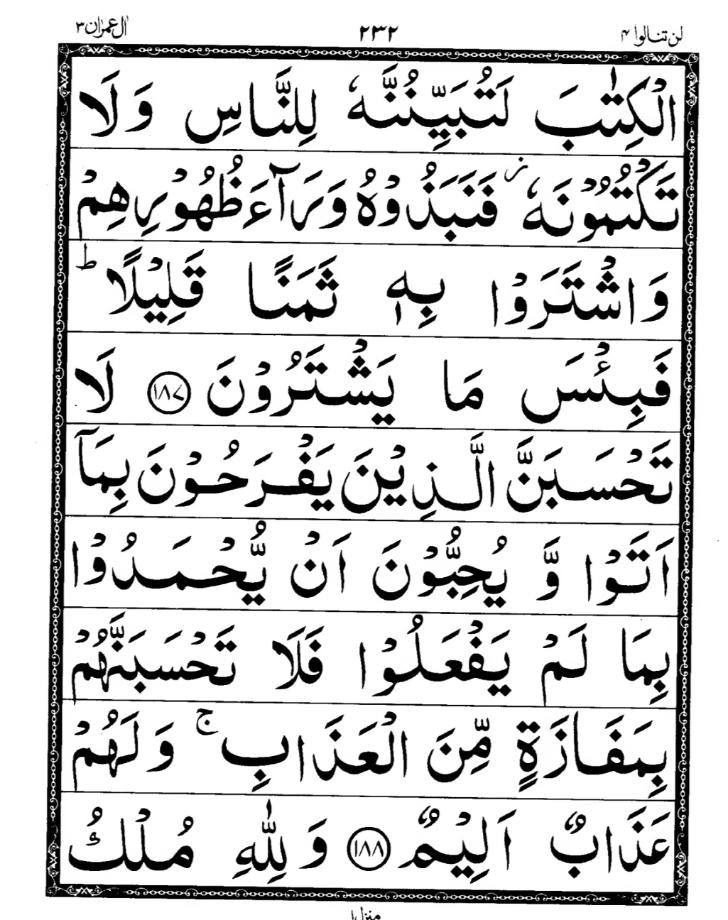 لن تنالوا ۴ ۲۳۲ اٰل عمران ۳
الْكِتٰبَ لَتُبَيِّنُنَّهٗ لِلنَّاسِ وَلَا
تَكْتُمُوْنَهٗ ز فَنَبَذُوْهُ وَرَآءَ ظُهُوْرِهِمْ
وَاشْتَرَوْا بِهٖ ثَمَنًا قَلِيْلًا ؕ
فَبِئْسَ مَا يَشْتَرُوْنَ ۝۱۸۷ لَا
تَحْسَبَنَّ الَّذِيْنَ يَفْرَحُوْنَ بِمَآ
اَتَوْا وَّ يُحِبُّوْنَ اَنْ يُّحْمَدُوْا
بِمَا لَمْ يَفْعَلُوْا فَلَا تَحْسَبَنَّهُمْ
بِمَفَازَةٍ مِّنَ الْعَذَابِ ۚ وَلَهُمْ
عَذَابٌ اَلِيْمٌ ۝۱۸۸ وَلِلّٰهِ مُلْكُ
منزل ۱